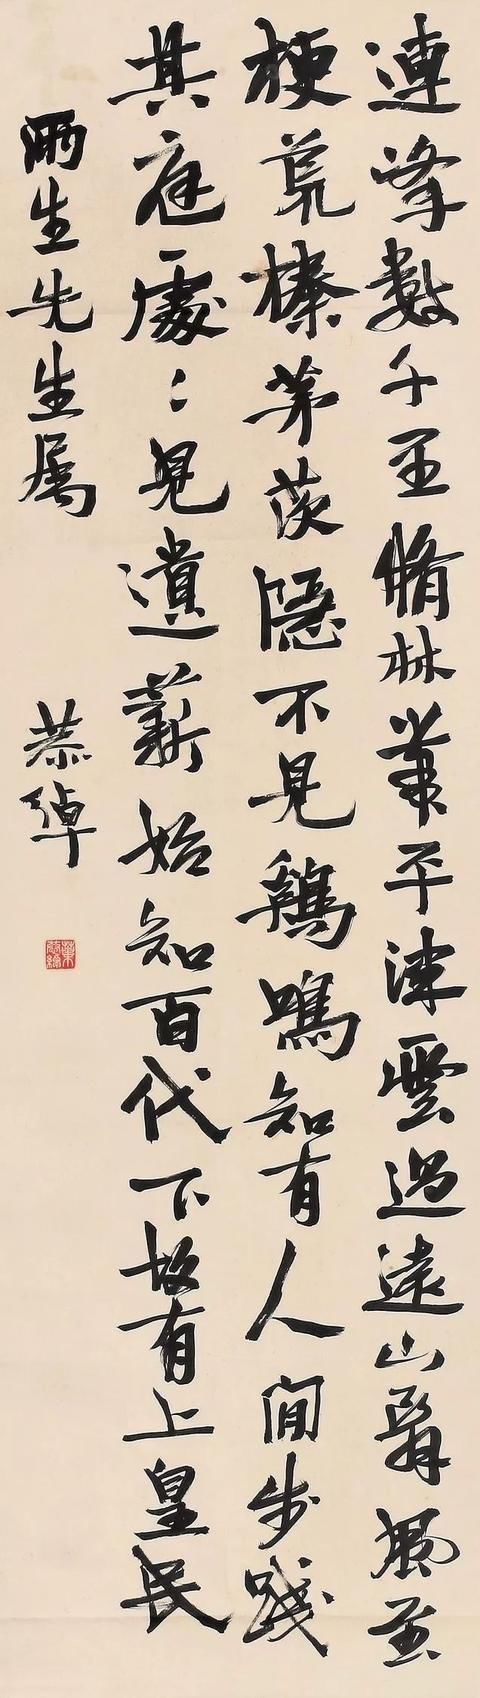 連峯數千里脩林帶平津雲過遠山翳風至
梗荒榛茅茨隱不見鷄鳴知有人間步踐
其庭處〻見遺薪始知百代下故有上皇民
生先生屬
恭綽
葉恭綽